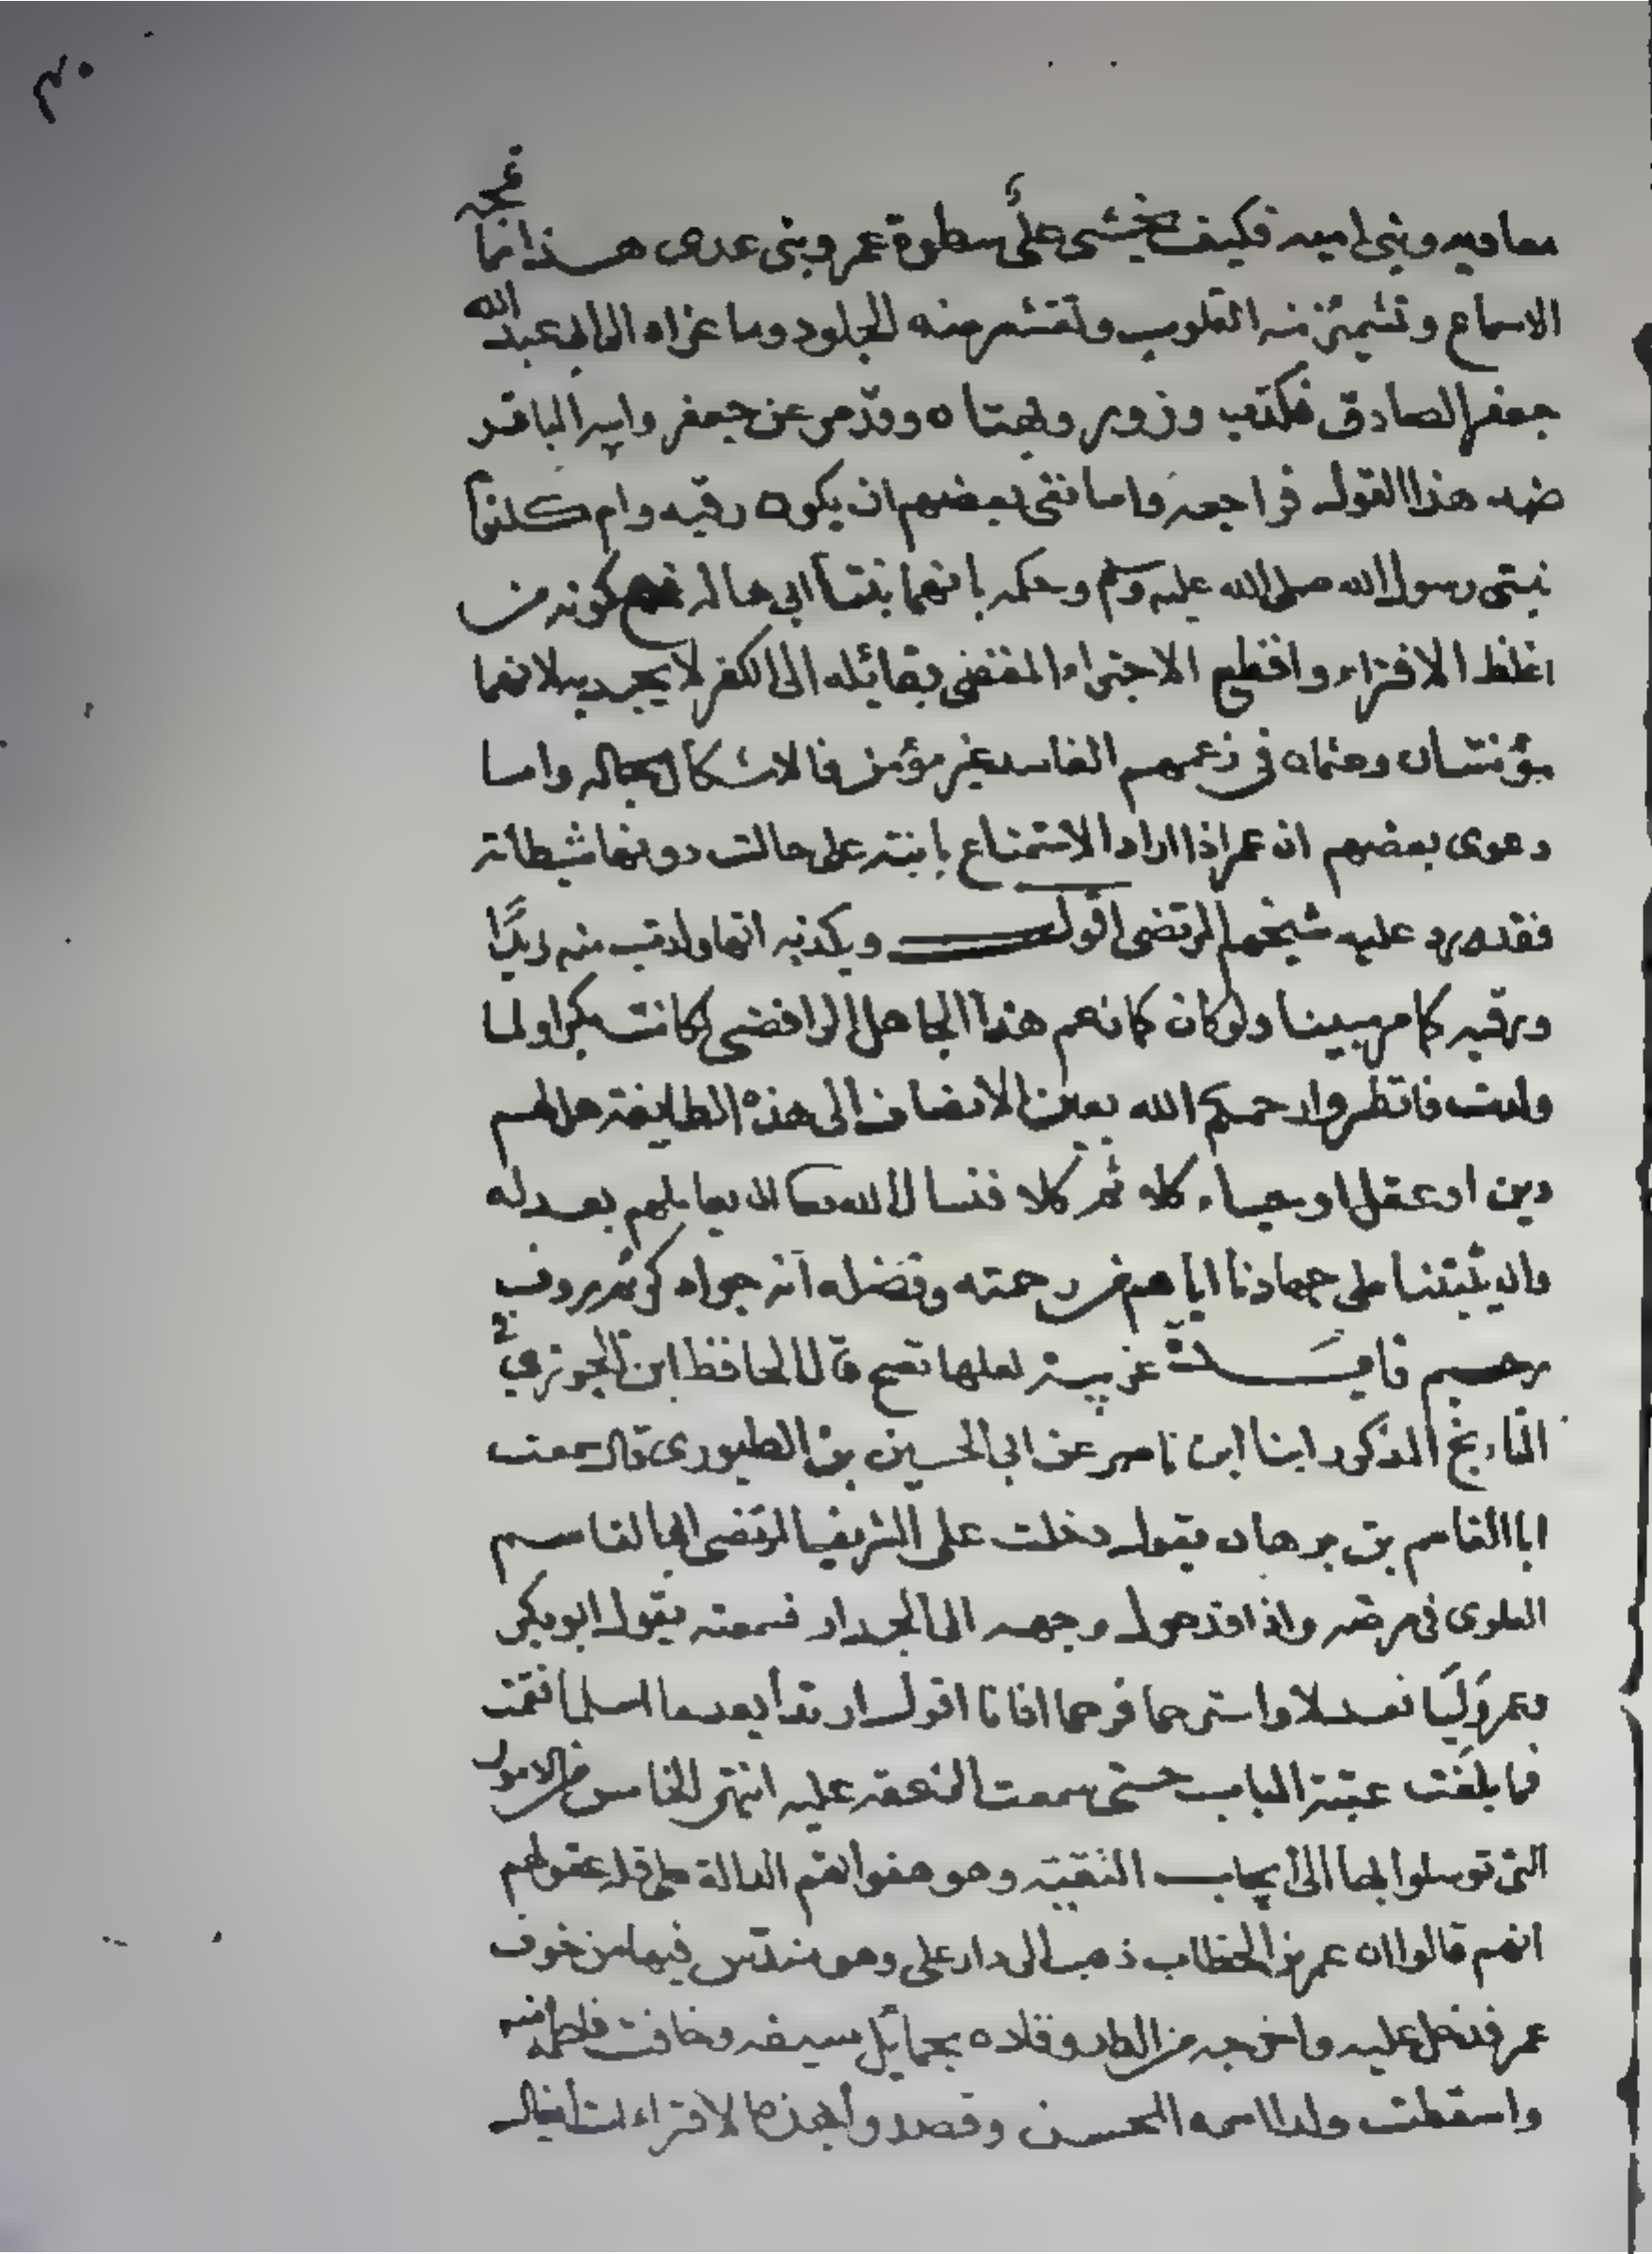 ٣٠
معاويه وبنى اميه فكيف يخشى علىٌّ سطوة عمر وبنى عدى هـذا مما تمجه
الاسماع وتشمئز منه القلوب وتقشعر منه الجلود وما عزاه الى ابى عبد الله
جعفر الصادق فكذب وزور وبهتان وقد مر عن جعفر وابيه الباقر
ضد هذا القول فراجعه واما نفى بعضهم ان يكون رقيه وام كلثوم
بنتى رسول الله صلى الله عليه وسلم وحكمه بانهما بنتا ابى هاله فمع كونه من
اغلظ الافتراء وافظع الاجتراء المفضى بقائله الى الكفر لا يجديه لانهما
مؤمنتان وعثمان فى زعمهم الفاسد غير مؤمن فالاشكال بحاله واما
دعوى بعضهم ان عمر اذا اراد الاستمتاع بابنته على حالت دونها شيطانة
فقد رد عليه شيخهم المرتضى اقول ويكذبه انها ولدت منه زيدًا
ورقيه كما مر مبينا ولو كان كما زعم هذا الجاهل الرافضى لكانت بكرا ولما
ولدت فانظروا رحمكم الله بعين الانصاف الى هذه الطايفة هل لهم
دين او عقل او حياء كلا ثم كلا فنسال الله تعا ان يعاملهم بعدله
وان يثبتنا على جهادنا اياهم من رحمته وفضله انه جواد كريم رءوف
رحيم فايــدة غريبة لعلها تصح قال الحافظ ابن الجوزى فى
التاريخ المذكور انبا ابن ناصر عن ابى الحسين بن الطيورى قال سمعت
ابا القاسم بن برهان يقول دخلت على الشريف المرتضى ابى القاسم
العلوى فى مرضه واذا قد حول وجهه الى الجدار فسمعته يقول ابو بكر
وعمر وَلِيَا فعدلا واسترحما فرحما افانا اقول ارتدا بعد ما اسلما فقمت
فما بلغت عتبة الباب حتى سمعت الزعقه عليه انتهى الخامس من الامور
التى توسلوا بها الى ايجاب التقيه وهو هفواتهم الدالة على قلة عقولهم
انهم قالوا ان عمر بن الخطاب ذهب الى دار على وهو مندس فيها من خوف
عمر فدخل عليه واخرجه من الدار وقاده بحمائل سيفه وخافت فاطمه منه
واسقطت ولدا اسمه المحسن وقصدوا بهذه الافتراءات